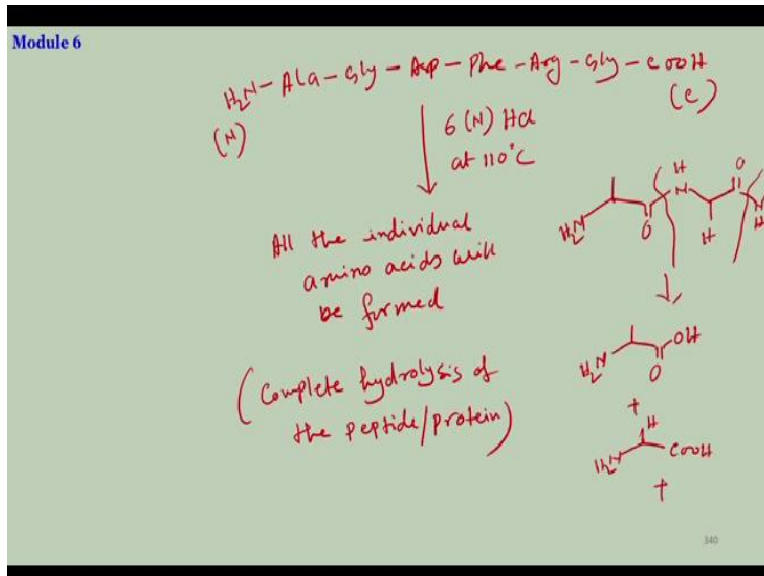 Module 6
H₂N-Ala-Gly-Asp-Phe-Arg-Gly-COOH
(N)
(C)
6 (N) HCl
at 110°C
All the individual
amino acids will
be formed
(Complete hydrolysis of
the peptide/protein)
H
O
H₂N
O
H
N
H
N
H
OH
H₂N
O
+
H
H₂N
COOH
+
340